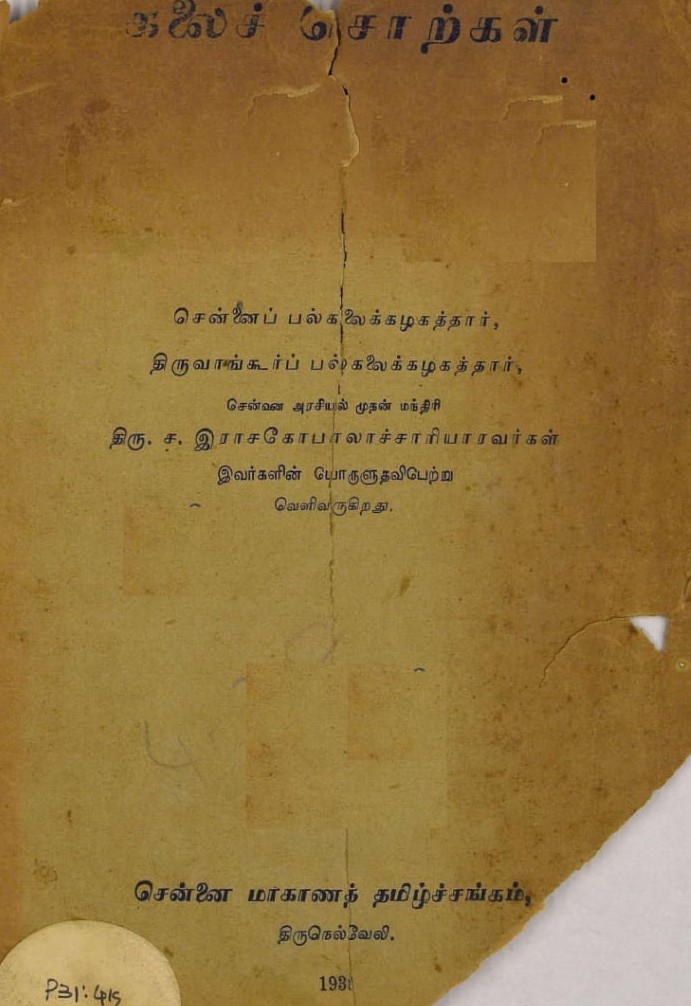 கலைச் சொற்கள்
சென்னைப் பல்கலைக்கழகத்தார்,
திருவாங்கூர்ப் பல்கலைக்கழகத்தார்,
சென்னை அரசியல் முதன் மந்திரி
திரு. ச. இராசகோபாலாச்சாரியாரவர்கள்
இவர்களின் பொருளுதவிபெற்று
வெளிவருகிறது.
சென்னை மாகாணத் தமிழ்ச்சங்கம்,
திருநெல்வேலி.